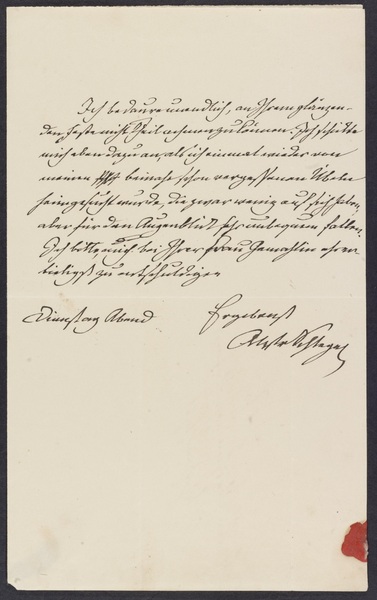 Ich bedaure unendlich, an Ihrem glänzen-
den Feste nicht Theil nehmen zu können. Ich schickte
mich eben dazu an, als ich einmal wieder von
meinem beinahe schon vergessenen Uebel
heimgesucht wurde, die zwar wenig auf sich haben,
aber für den Augenblick sehr unbequem fallen.
Ich bitte, mich bei Ihrer Frau Gemahlin ehrer-
bietigst zu entschuldigen
Dienstag Abend
Ergebenst
AWvSchlegel